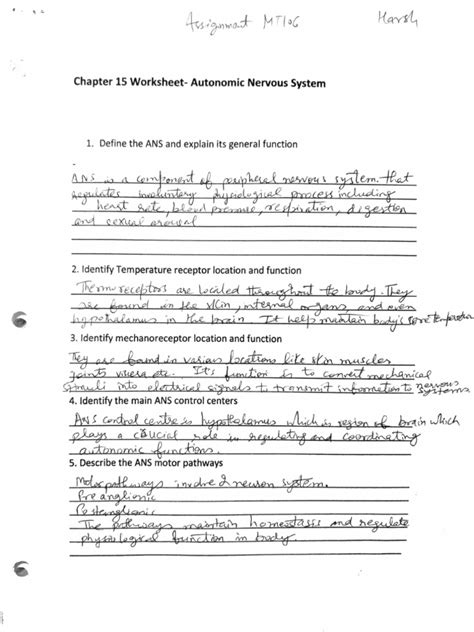 Assignment MT106 Harsh
Chapter 15 Worksheet- Autonomic Nervous System
1. Define the ANS and explain its general function
ANS is a component of peripheral nervous system. that
regulates involuntary physiological process including
heart rate, blood pressure, respiration, digestion
and sexual arousal
2. Identify Temperature receptor location and function
Thermoreceptors are located throughout the body. They
are found in the skin, internal organs and even
hypothalamus in the brain. It help maintain body's core temperature
3. Identify mechanoreceptor location and function
They are found in various locations like skin muscles
joints visera etc. It's function is to convert mechanical
stimuli into electrical signals to transmit information to nervous
systems
4. Identify the main ANS control centers
ANS control centre is hypothalamus which is region of brain which
plays a crucial role in regulating and coordinating
autonomic functions.
5. Describe the ANS motor pathways
Motor pathways involve 2 neuron system.
Pre anglionic
Postanglionic
The pathways maintain homeostasis and regulate
physiological function in body.